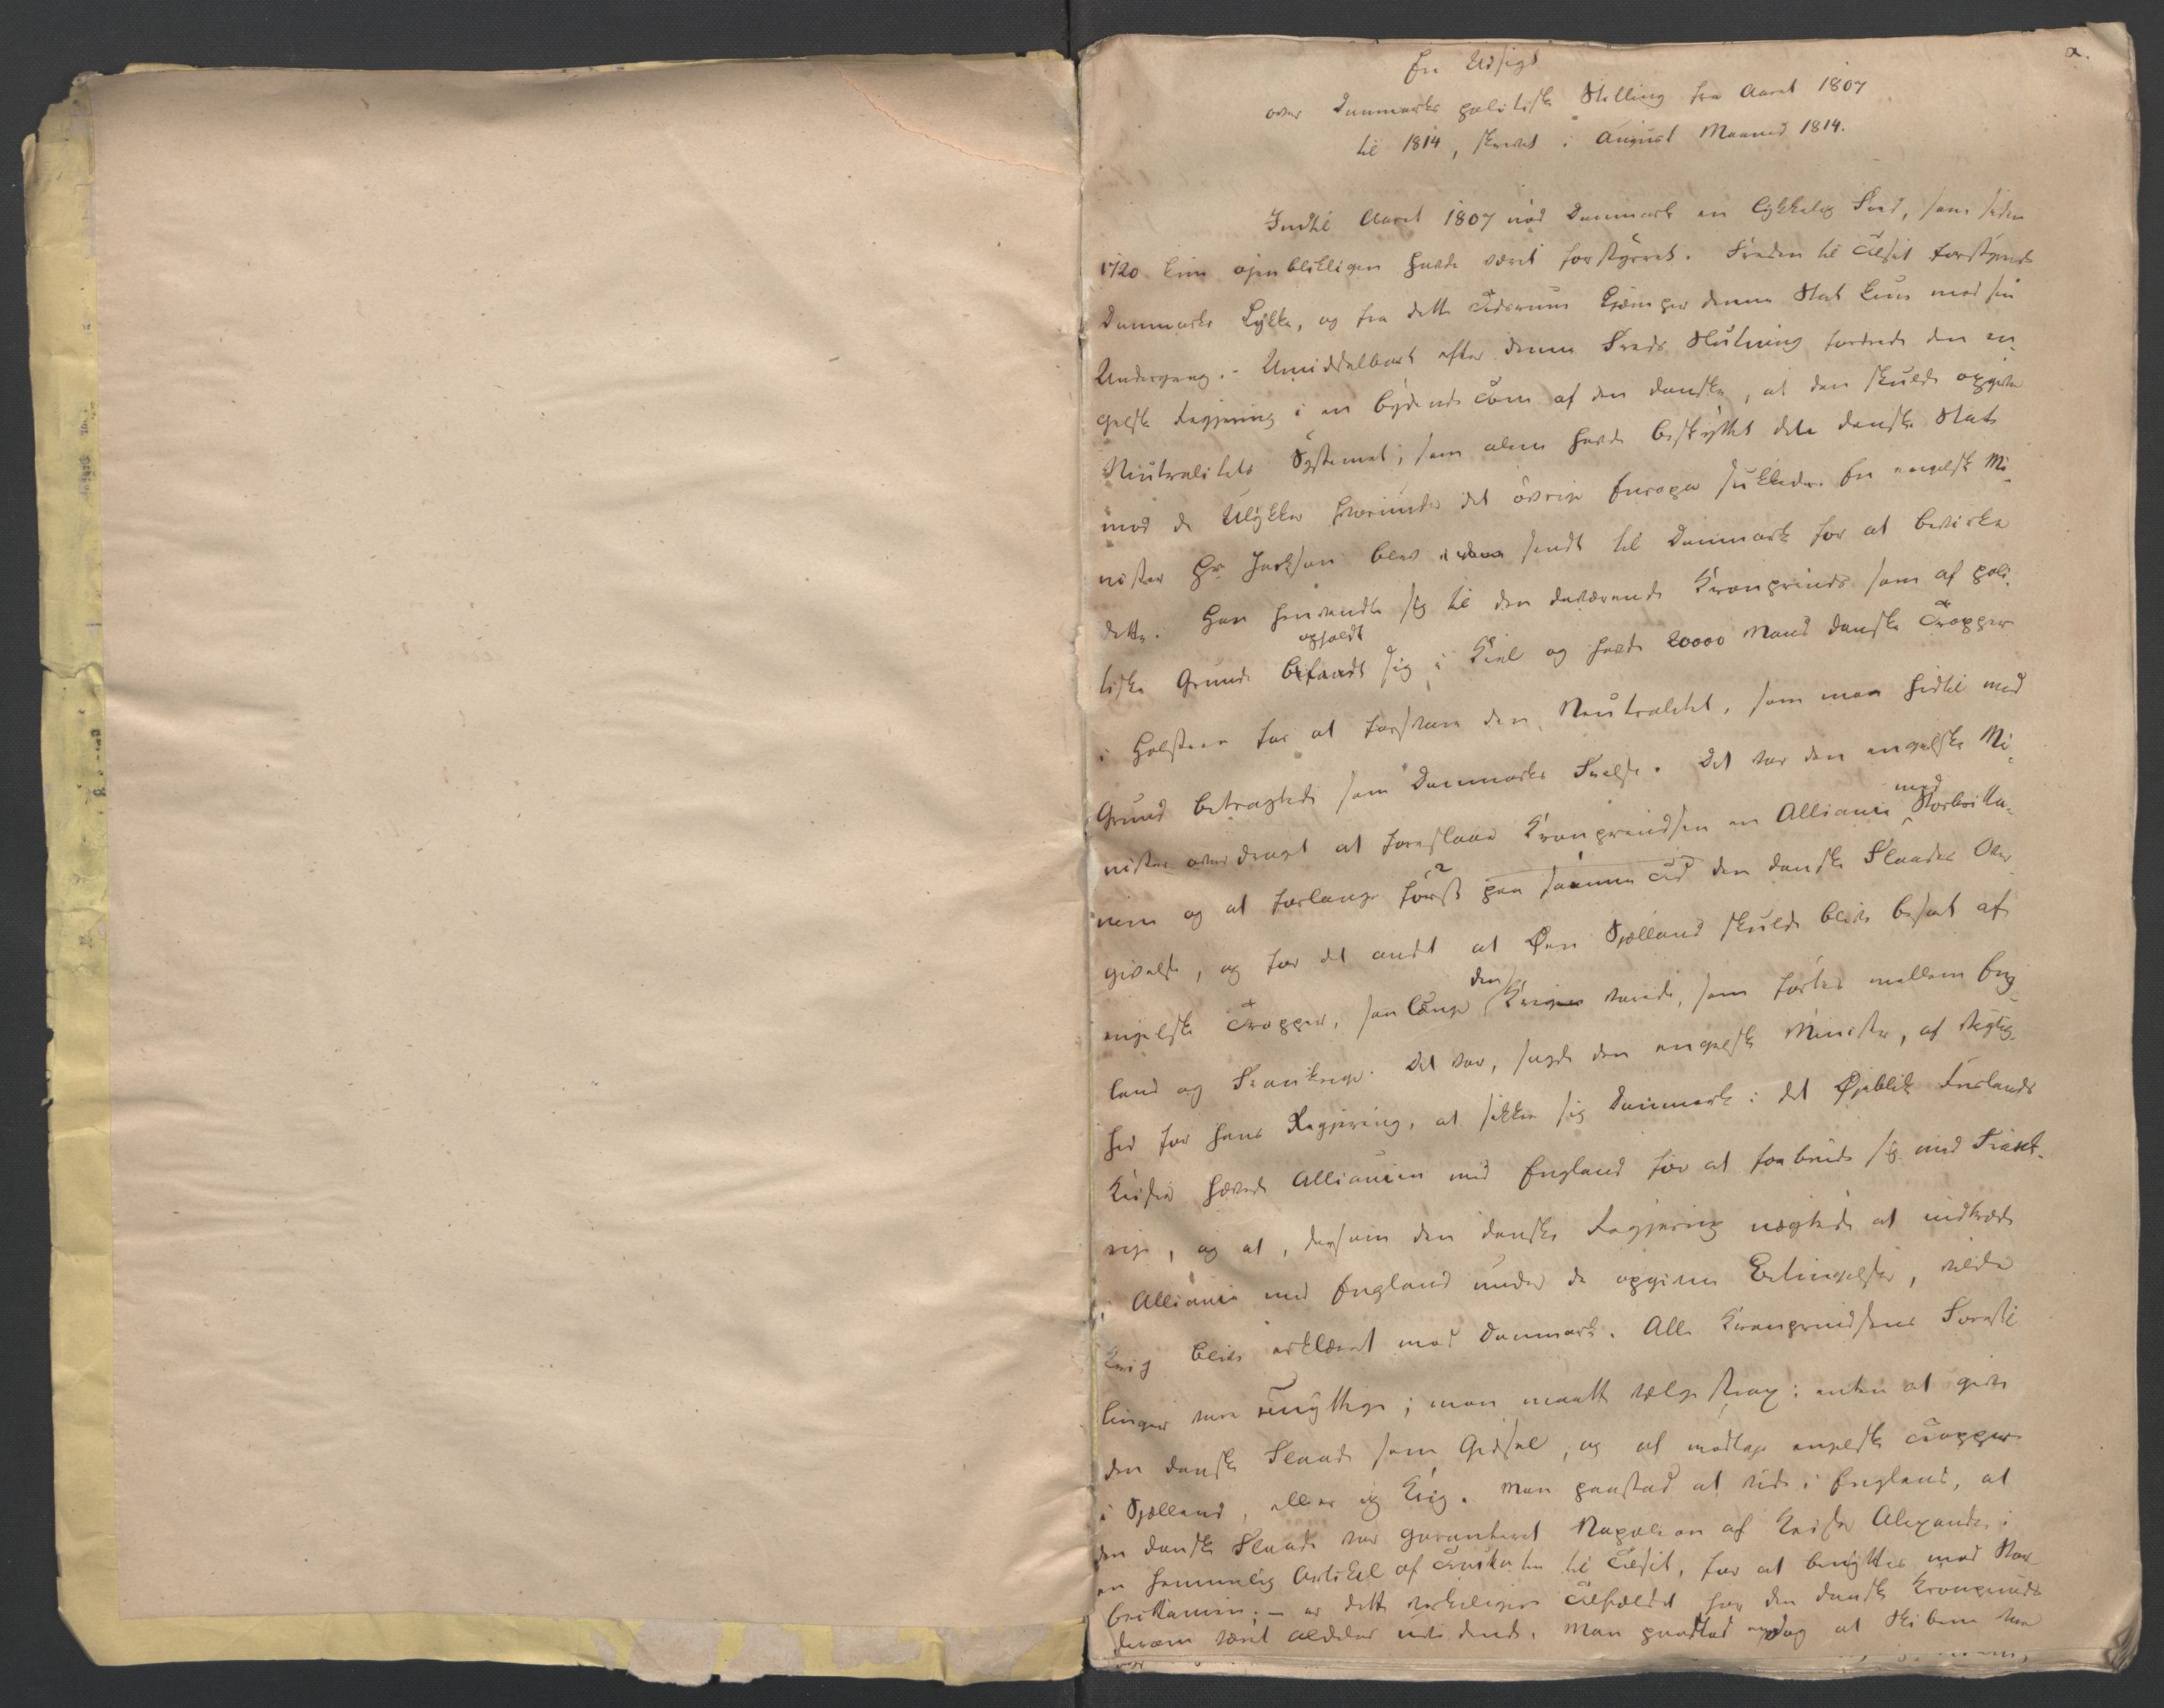 a.
En Udsigt
over Danmarks politiske Stilling fra Aaret 1807
til 1814, skrevet i August Maaned 1814.
Indtil Aaret 1807 nød Danmark en lykkelig Fred, som siden
1720 kun øjenblikligen havde været forstyrret. Freden til Tilsit forstyrrede
Danmarks Lykke, og fra dette Tidsrum kjæmper denne Stat kun mod sin
Undergang. - Umiddelbart efter denne Freds Slutning fordrede den en-
gelske Regjering i en bydende Tone af den danske, at den skulde opgive
Neutralitets Systemet, som alene havde beskyttet den danske Stat
mod de Ulykker hvorunder det øvrige Europa sukkede. En engelsk Mi-
nister Hr Jackson blev sendt til Danmark for at bevirke
dette. Han henvendte sig til den daværende Kronprinds som af poli-
opholdt
tiske Grunde befandt sig i Kiel og havde 20000 Mand danske Tropper
i Holsteen for at forsvare den Neutralitet, som man hidtil med
Grund betragtede som Danmarks Frelse. Det var den engelske Mi-
med
nister overdraget at foreslaae Kronprindsen en Alliance Storbritta-
nien og at forlange først paa samme Tid den danske Flaades Over-
givelse, og for det andet at Øen Sjælland skulde blive besat af
den
engelske Tropper, saa længe Krigen varede, som førtes mellem Eng-
land og Frankrige. Det var, sagde den engelske Minister, af Vigtig-
hed for hans Regjering, at sikkre sig Danmark i det Øjeblik Ruslands
Keiser hævede Alliancen med England for at forbinde sig med Frank-
rige, og at, dersom den danske Regjering nægtede at indtræde
i Alliance med England under de opgivne Betingelser, vilde
Krig blive erklæret mod Danmark. Alle Kronprindsens Forestil
linger vare unyttige; man maatte vælge strax: enten at give
den danske Flaade som Gidsel, og at modtage engelske Tropper
i Sjælland, eller og Krig. Man paastod at vide i England, at
den danske Flaade var garanteret Napoleon af Keiser Alexander i
en hemmelig Artikel af Traktaten til Tilsit, for at benyttes mod Stor-
britanien; - er dette virkeligen Tilfældet har den danske Kronprinds
derom været aldeles uvidende. Man paastod endog at Skibene vare